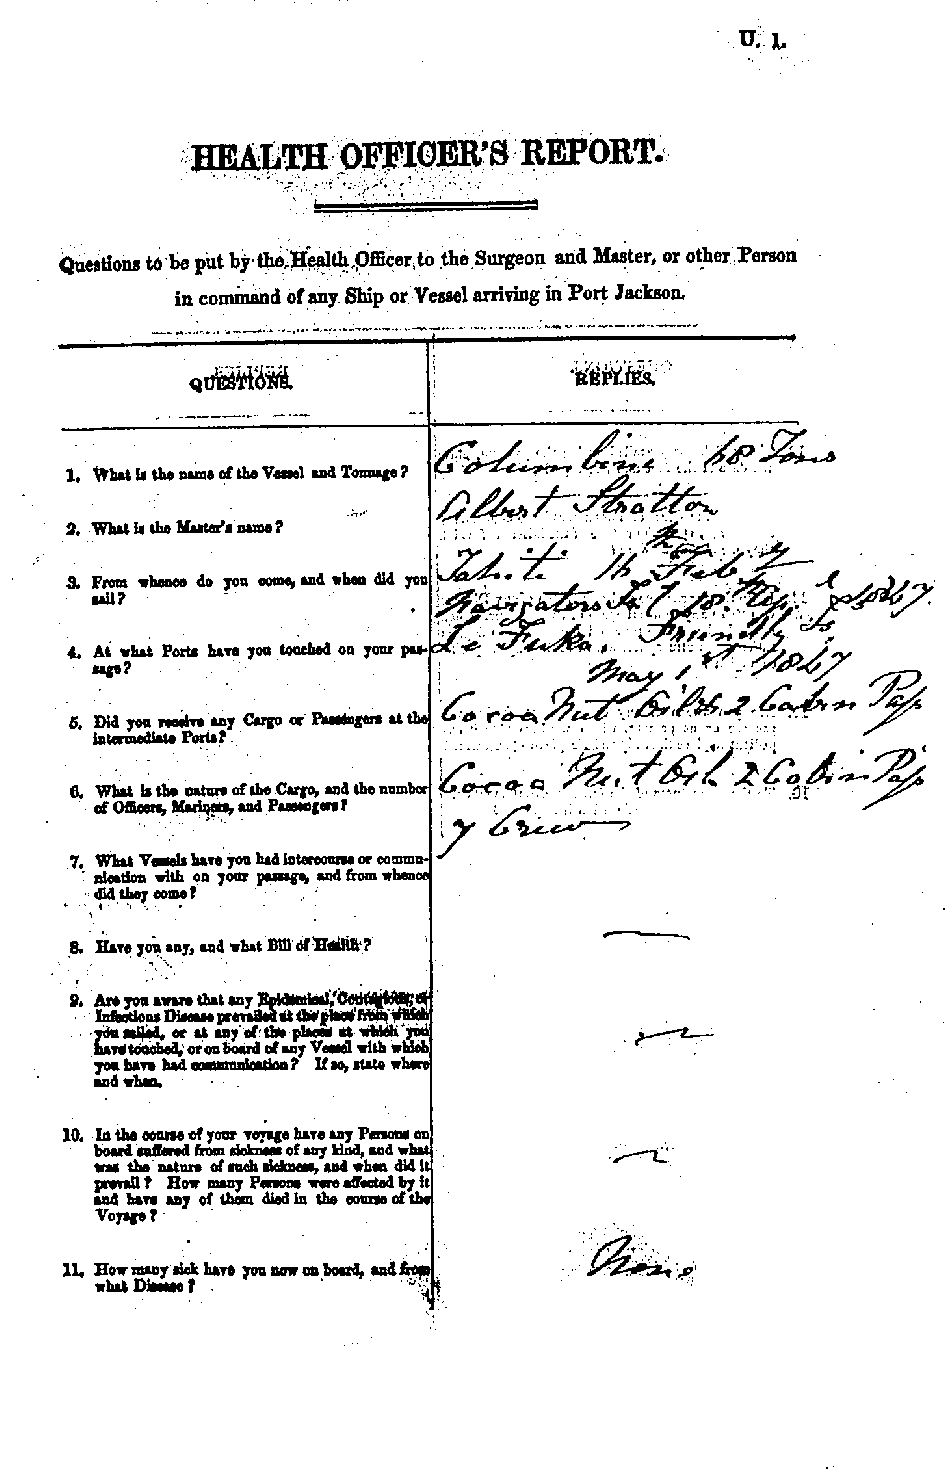 U. 1.
HEALTH OFFICER'S REPORT.
Questions to be put by the Health Officer to the Surgeon and Master, or other Person
in command of any Ship or Vessel arriving in Port Jackson.
QUESTIONS.
REPLIES.
1. What is the name of the Vessel and Tonnage?
Columbine 68 Tons
2. What is the Master's name?
Albert Stratton
3. From whence do you come, and when did you
sail?
Tahiti 16th Feby
Navigators Isd 18th 1867.
4. At what Ports have you touched on your pas-
sage?
Le Fuka, Friendly Is
May 1st 1867
5. Did you receive any Cargo or Passengers at the
intermediate Ports?
Cocoa Nut Oil 2 Cabin Pass
6. What is the nature of the Cargo, and the number
of Officers, Mariners, and Passengers?
Cocoa Nut Oil 2 Cabin Pass
7 Crew
7. What Vessels have you had intercourse or commu-
nication with on your passage, and from whence
did they come?
8. Have you any, and what Bill of Health?
—
9. Are you aware that any Epidemical, Contagious, or
Infectious Disease prevailed at the place from which
you sailed, or at any of the places at which you
have touched, or on board of any Vessel with which
you have had communication? If so, state where
and when.
10. In the course of your voyage have any Persons on
board suffered from sickness of any kind, and what
was the nature of such sickness, and when did it
prevail? How many Persons were affected by it
and have any of them died in the course of the
Voyage?
11. How many sick have you now on board, and from
what Disease?
None